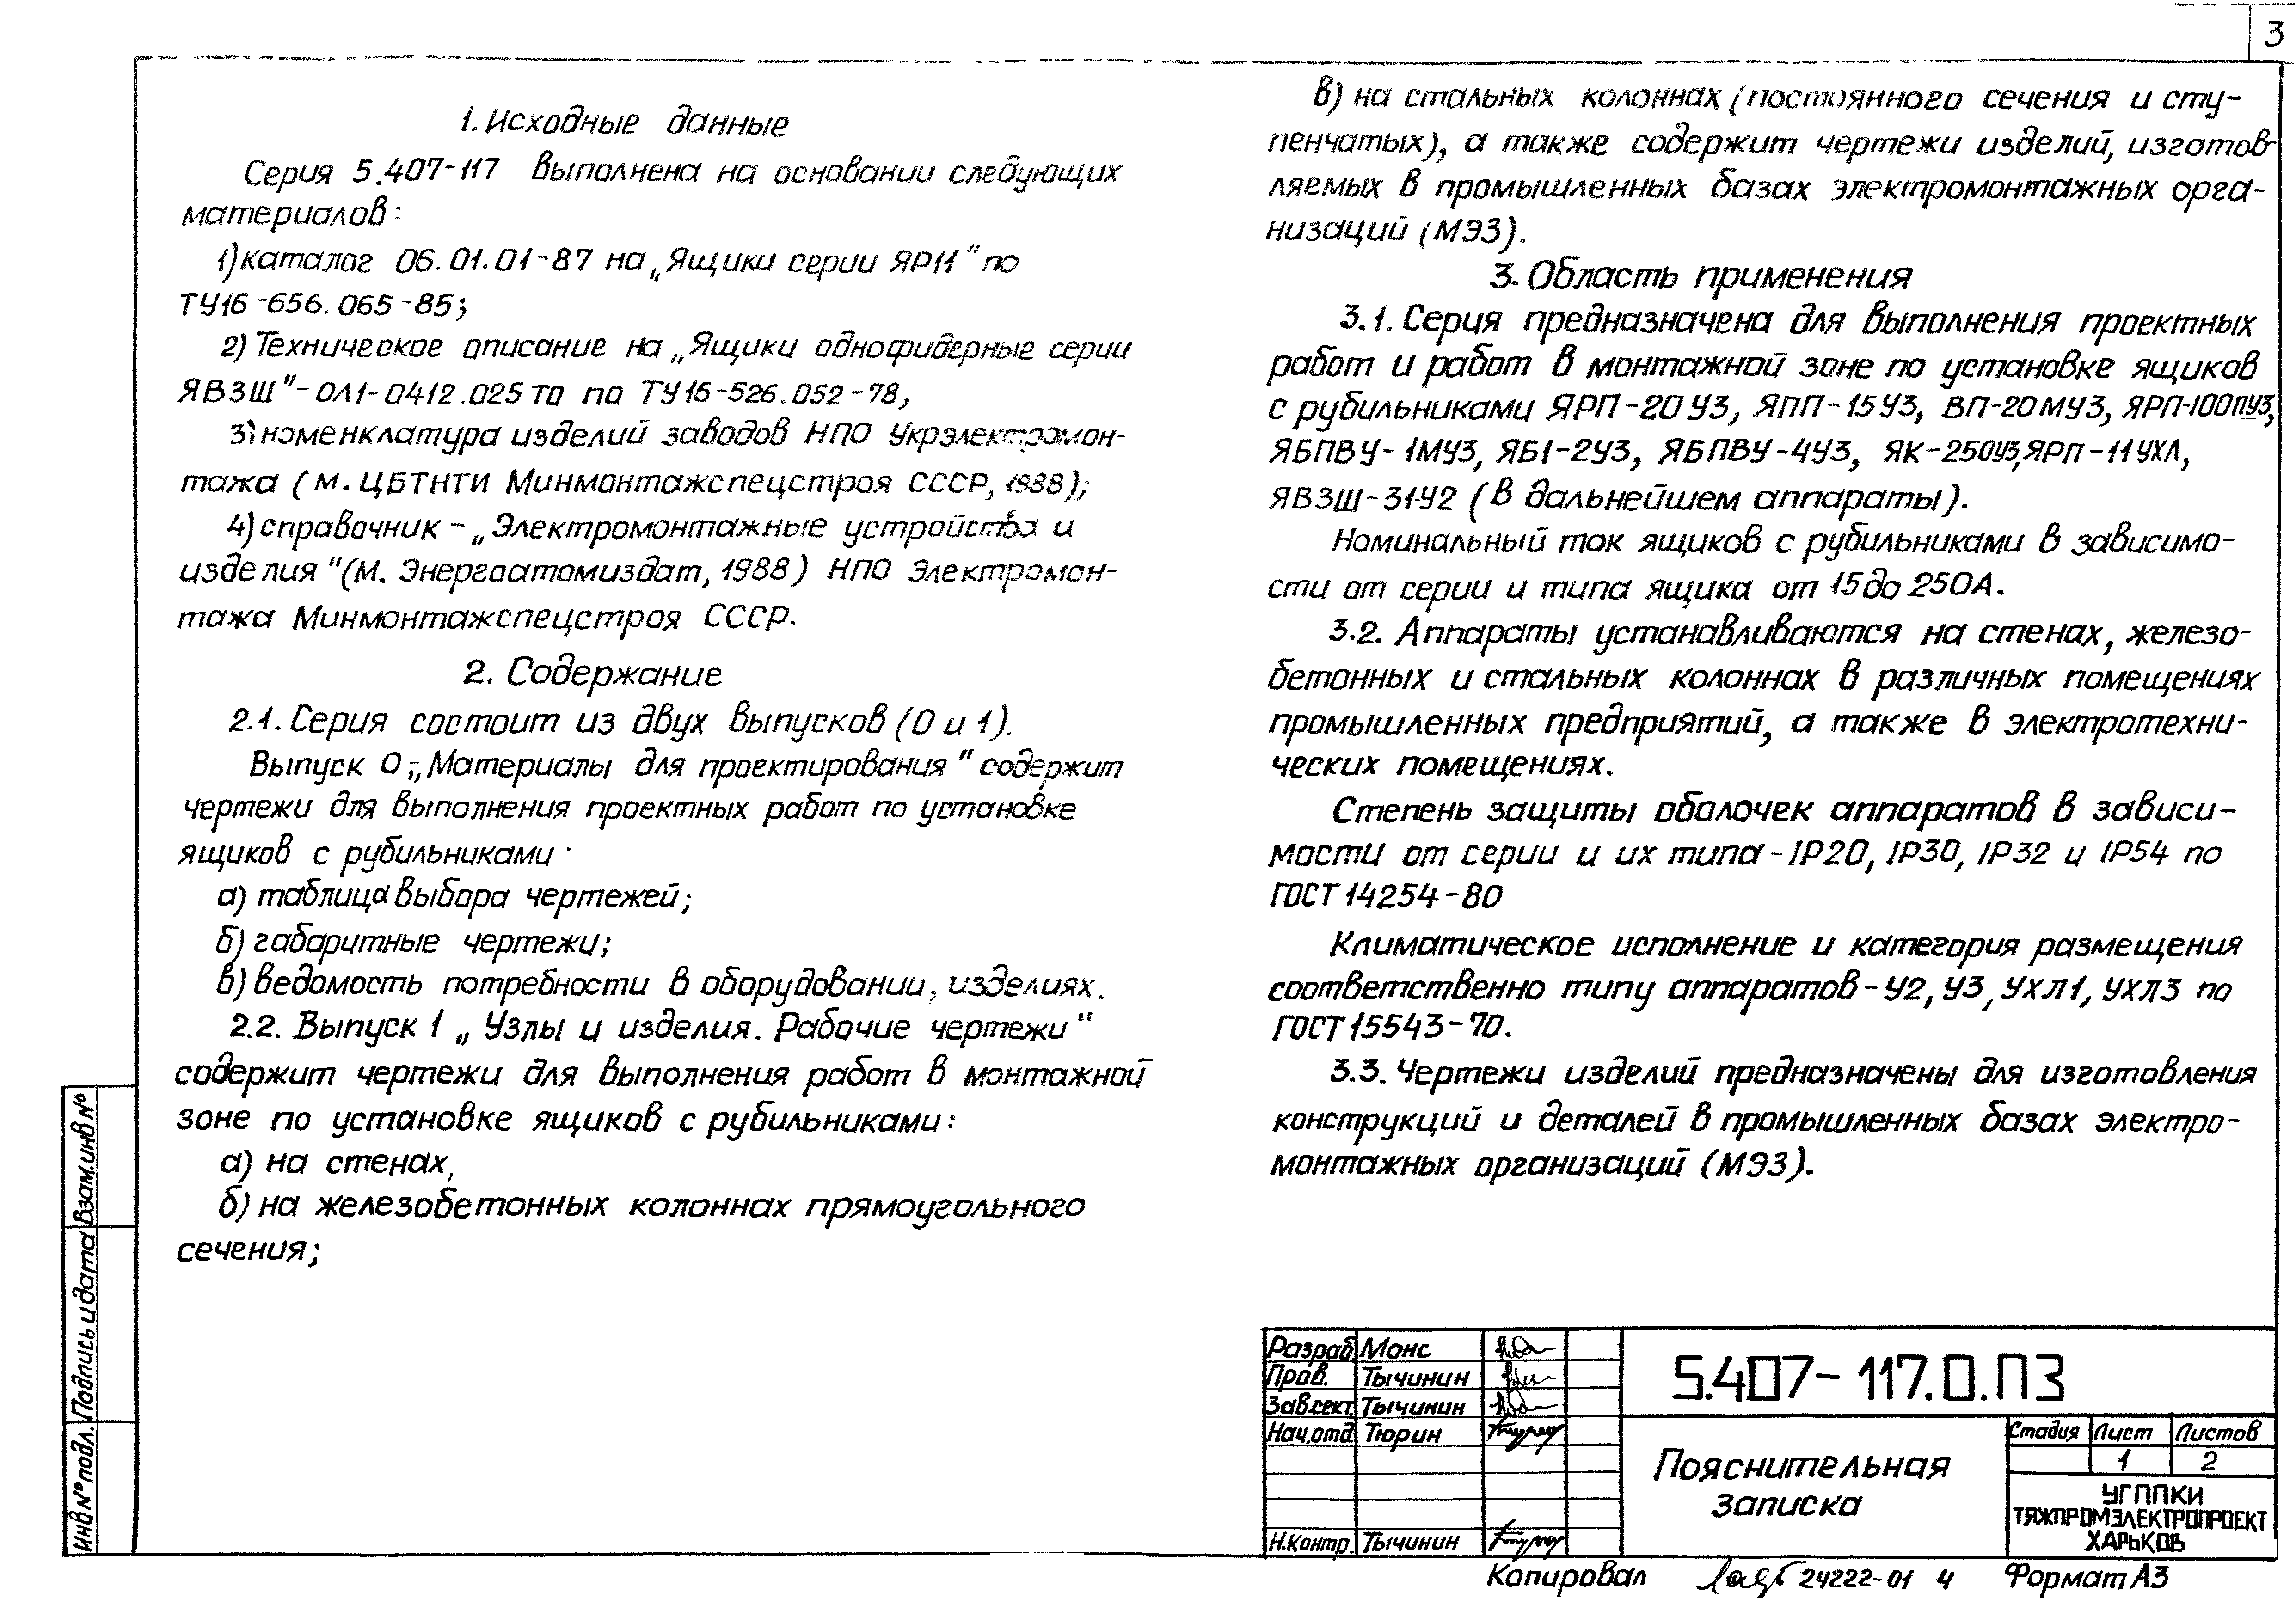 3
1. Исходные данные
Серия 5.407-117 выполнена на основании следующих
материалов:
1) каталог 06.01.01-87 на „Ящики серии ЯР11" по
ТУ16-656.065-85;
2) Техническое описание на „Ящики однофидерные серии
ЯВЗШ"- ОЛ1-0412.025 ТО по ТУ16-526.052-78,
3) номенклатура изделий заводов НПО Укрэлектромон-
тажа (м. ЦБТНТИ Минмонтажспецстроя СССР, 1988);
4) справочник - „Электромонтажные устройства и
изделия" (М. Энергоатомиздат, 1988) НПО Электромон-
тажа Минмонтажспецстроя СССР.
2. Содержание
2.1. Серия состоит из двух выпусков (0 и 1).
Выпуск 0-„Материалы для проектирования" содержит
чертежи для выполнения проектных работ по установке
ящиков с рубильниками.
а) таблица выбора чертежей;
б) габаритные чертежи;
в) ведомость потребности в оборудовании, изделиях.
2.2. Выпуск 1 „Узлы и изделия. Рабочие чертежи"
содержит чертежи для выполнения работ в монтажной
зоне по установке ящиков с рубильниками:
а) на стенах,
б) на железобетонных колоннах прямоугольного
сечения;
в) на стальных колоннах (постоянного сечения и сту-
пенчатых), а также содержит чертежи изделий, изготов-
ляемых в промышленных базах электромонтажных орга-
низаций (МЭЗ).
3. Область применения
3.1. Серия предназначена для выполнения проектных
работ и работ в монтажной зоне по установке ящиков
с рубильниками ЯРП-20У3, ЯПП-15У3, ВП-20МУ3, ЯРП-100ПУ3,
ЯБПВУ-1МУ3, ЯБ1-2У3, ЯБПВУ-4У3, ЯК-250У3, ЯРП-11УХЛ,
ЯВЗШ-31-У2 (в дальнейшем аппараты).
Номинальный ток ящиков с рубильниками в зависимо-
сти от серии и типа ящика от 15 до 250А.
3.2. Аппараты устанавливаются на стенах, железо-
бетонных и стальных колоннах в различных помещениях
промышленных предприятий, а также в электротехни-
ческих помещениях.
Степень защиты оболочек аппаратов в зависи-
мости от серии и их типа - IP20, IP30, IP32 и IP54 по
ГОСТ 14254-80
Климатическое исполнение и категория размещения
соответственно типу аппаратов - У2, У3, УХЛ1, УХЛ3 по
ГОСТ 15543-70.
3.3. Чертежи изделий предназначены для изготовления
конструкций и деталей в промышленных базах электро-
монтажных организаций (МЭЗ).
Взам.инв №
Подпись и дата
Инв № подл.
Разраб. Монс
Пров. Тычинин
Зав.сект. Тычинин
Нач.отд Тюрин
Н.контр. Тычинин
5.407-117.0.ПЗ
Пояснительная
записка
Стадия Лист Листов
1 2
УГППКИ
ТЯЖПРОМЭЛЕКТРОПРОЕКТ
ХАРЬКОВ
Копировал 24222-01 4 Формат А3